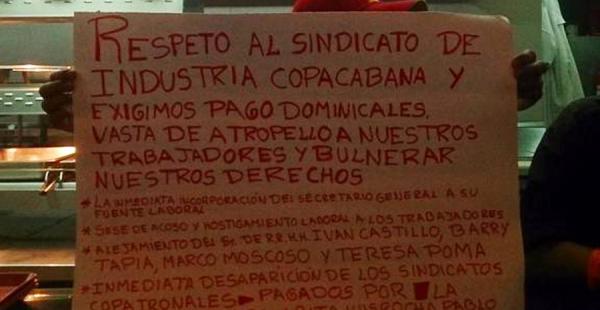 RESPETO AL SINDICATO DE
INDUSTRIA COPACABANA Y
EXIGIMOS PAGO DOMINICALES.
VASTA DE ATROPELLO A NUESTROS
TRABAJADORES Y BULNERAR
NUESTROS DERECHOS
* LA INMEDIATA INCORPORACIÓN DEL SECRETARIO GENERAL A SU
FUENTE LABORAL
* SESE DE ACOSO Y HOSTIGAMIENTO LABORAL A LOS TRABAJADORES
* ALEJAMIENTO DEL Sr. DE RR.HH. IVAN CASTILLO, BARRY
TAPIA, MARCO MOSCOSO Y TERESA POMA
* INMEDIATA DESAPARICIÓN DE LOS SINDICATOS
COPATRONALES PAGADOS POR LA
PABLO